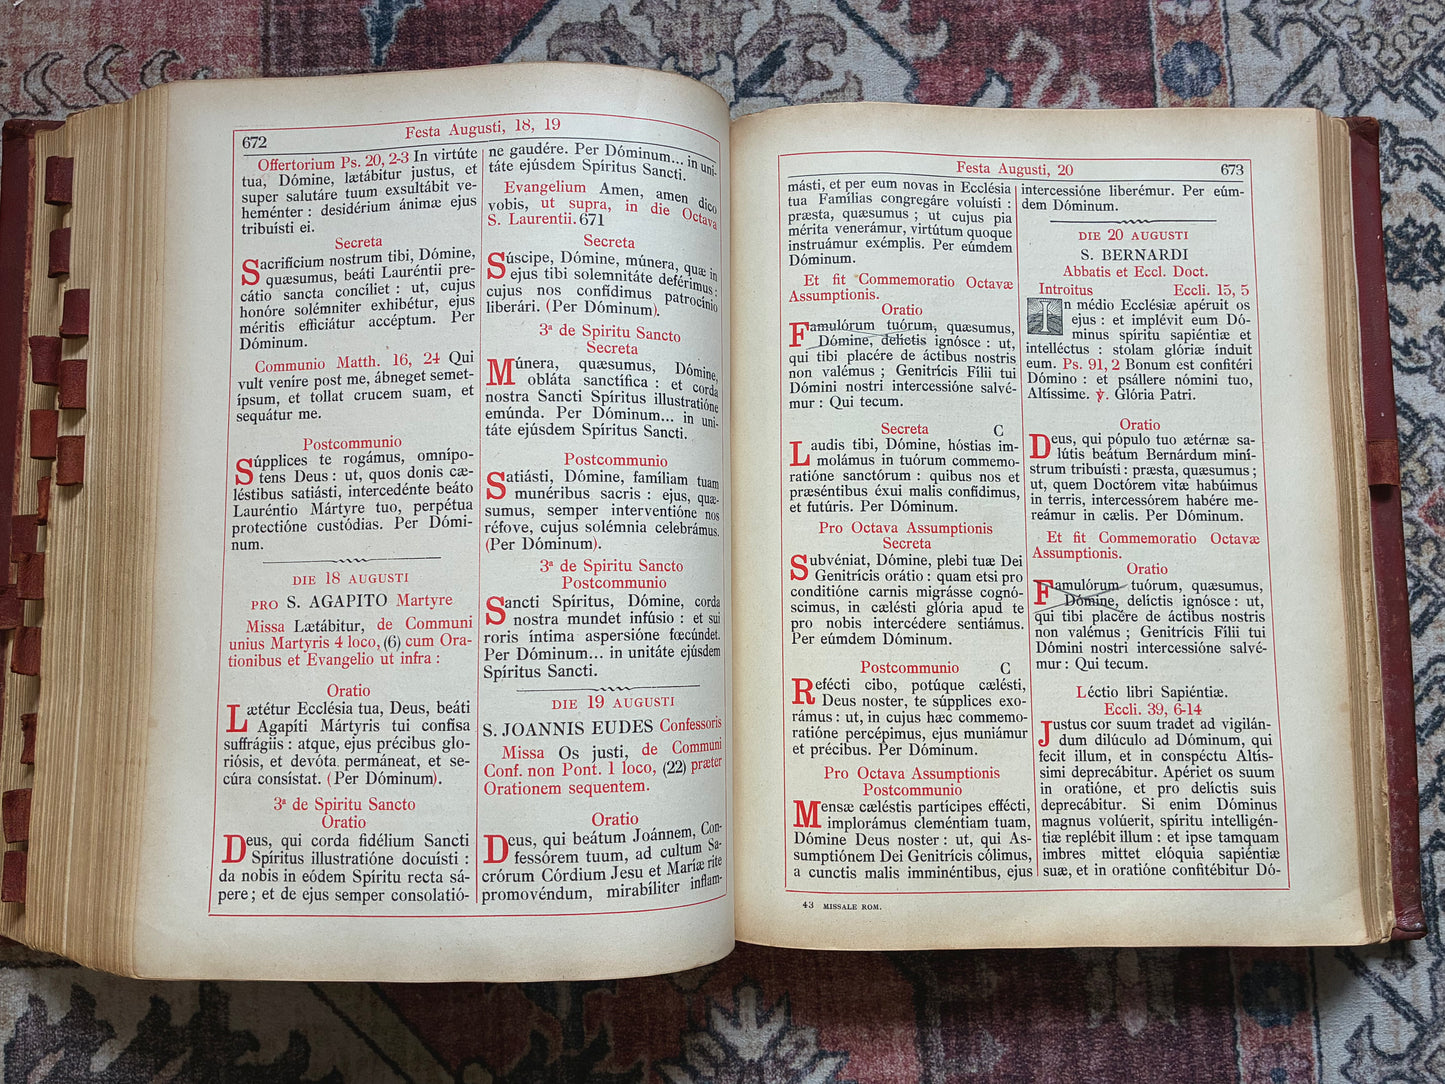 672
Festa Augusti, 18, 19
Offertorium Ps. 20, 2-3 In virtúte
tua, Dómine, lætábitur justus, et
super salutáre tuum exsultábit ve-
heménter : desidérium ánimæ ejus
tribuísti ei.
Secreta
Sacrificium nostrum tibi, Dómine,
quæsumus, beáti Lauréntii pre-
cátio sancta concíliet : ut, cujus
honóre solémniter exhibétur, ejus
méritis efficiátur accéptum. Per
Dóminum.
Communio Matth. 16, 24 Qui
vult veníre post me, ábneget semet-
ípsum, et tollat crucem suam, et
sequátur me.
Postcommunio
Súpplices te rogámus, omnípo-
tens Deus : ut, quos donis cæ-
léstibus satiásti, intercedénte beáto
Lauréntio Mártyre tuo, perpétua
protectióne custódias. Per Dómi-
num.
DIE 18 AUGUSTI
PRO S. AGAPITO Martyre
Missa Lætábitur, de Communi
unius Martyris 4 loco, (6) cum Ora-
tionibus et Evangelio ut infra :
Oratio
Lætétur Ecclésia tua, Deus, beáti
Agapíti Mártyris tui confísa
suffrágiis : atque, ejus précibus glo-
riósis, et devóta permáneat, et se-
cúra consístat. (Per Dóminum).
3ª de Spiritu Sancto
Oratio
Deus, qui corda fidélium Sancti
Spíritus illustratióne docuísti :
da nobis in eódem Spíritu recta sá-
pere ; et de ejus semper consolatió-
ne gaudére. Per Dóminum... in uni-
táte ejúsdem Spíritus Sancti.
Evangelium Amen, amen dico
vobis, ut supra, in die Octava
S. Laurentii. 671
Secreta
Súscipe, Dómine, múnera, quæ in
ejus tibi solemnitáte deférimus :
cujus nos confídimus patrocínio
liberári. (Per Dóminum).
3ª de Spiritu Sancto
Secreta
Múnera, quæsumus, Dómine,
obláta sanctífica : et corda
nostra Sancti Spíritus illustratióne
emúnda. Per Dóminum... in uni-
táte ejúsdem Spíritus Sancti.
Postcommunio
Satiásti, Dómine, famíliam tuam
munéribus sacris : ejus, quæ-
sumus, semper interventióne nos
réfove, cujus solémnia celebrámus.
(Per Dóminum).
3ª de Spiritu Sancto
Postcommunio
Sancti Spíritus, Dómine, corda
nostra mundet infúsio : et sui
roris íntima aspersióne fœcúndet.
Per Dóminum... in unitáte ejúsdem
Spíritus Sancti.
DIE 19 AUGUSTI
S. JOANNIS EUDES Confessoris
Missa Os justi, de Communi
Conf. non Pont. 1 loco, (22) præter
Orationem sequentem.
Oratio
Deus, qui beátum Joánnem, Con-
fessórem tuum, ad cultum Sa-
crórum Córdium Jesu et Maríæ rite
promovéndum, mirabíliter inflam-
Festa Augusti, 20
673
másti, et per eum novas in Ecclésia
tua Famílias congregáre voluísti :
præsta, quæsumus ; ut cujus pia
mérita venerámur, virtútum quoque
instruámur exémplis. Per eúmdem
Dóminum.
Et fit Commemoratio Octavæ
Assumptionis.
Oratio
Famulórum tuórum, quæsumus,
Dómine, delíctis ignósce : ut,
qui tibi placére de áctibus nostris
non valémus ; Genitrícis Fílii tui
Dómini nostri intercessióne salvé-
mur : Qui tecum.
Secreta C
Laudis tibi, Dómine, hóstias im-
molámus in tuórum commemo-
ratióne sanctórum : quibus nos et
præséntibus éxui malis confídimus,
et futúris. Per Dóminum.
Pro Octava Assumptionis
Secreta
Subvéniat, Dómine, plebi tuæ Dei
Genitrícis orátio : quam etsi pro
conditióne carnis migrásse cognó-
scimus, in cælésti glória apud te
pro nobis intercédere sentiámus.
Per eúmdem Dóminum.
Postcommunio C
Refécti cibo, potúque cælésti,
Deus noster, te súpplices exo-
rámus : ut, in cujus hæc commemo-
ratióne percépimus, ejus muniámur
et précibus. Per Dóminum.
Pro Octava Assumptionis
Postcommunio
Mensæ cæléstis partícipes effécti,
implorámus cleméntiam tuam,
Dómine Deus noster : ut, qui As-
sumptiónem Dei Genitrícis cólimus,
a cunctis malis imminéntibus, ejus
43 MISSALE ROM.
intercessióne liberémur. Per eúm-
dem Dóminum.
DIE 20 AUGUSTI
S. BERNARDI
Abbatis et Eccl. Doct.
Introitus Eccli. 15, 5
In médio Ecclésiæ apéruit os
ejus : et implévit eum Dó-
minus spíritu sapiéntiæ et
intelléctus : stolam glóriæ índuit
eum. Ps. 91, 2 Bonum est confitéri
Dómino : et psállere nómini tuo,
Altíssime. ℣. Glória Patri.
Oratio
Deus, qui pópulo tuo ætérnæ sa-
lútis beátum Bernárdum miní-
strum tribuísti : præsta, quæsumus ;
ut, quem Doctórem vitæ habúimus
in terris, intercessórem habére me-
reámur in cælis. Per Dóminum.
Et fit Commemoratio Octavæ
Assumptionis.
Oratio
Famulórum tuórum, quæsumus,
Dómine, delíctis ignósce : ut,
qui tibi placére de áctibus nostris
non valémus ; Genitrícis Fílii tui
Dómini nostri intercessióne salvé-
mur : Qui tecum.
Léctio libri Sapiéntiæ.
Eccli. 39, 6-14
Justus cor suum tradet ad vigilán-
dum dilúculo ad Dóminum, qui
fecit illum, et in conspéctu Altís-
simi deprecábitur. Apériet os suum
in oratióne, et pro delíctis suis
deprecábitur. Si enim Dóminus
magnus volúerit, spíritu intelligén-
tiæ replébit illum : et ipse tamquam
imbres mittet elóquia sapiéntiæ
suæ, et in oratióne confitébitur Dó-